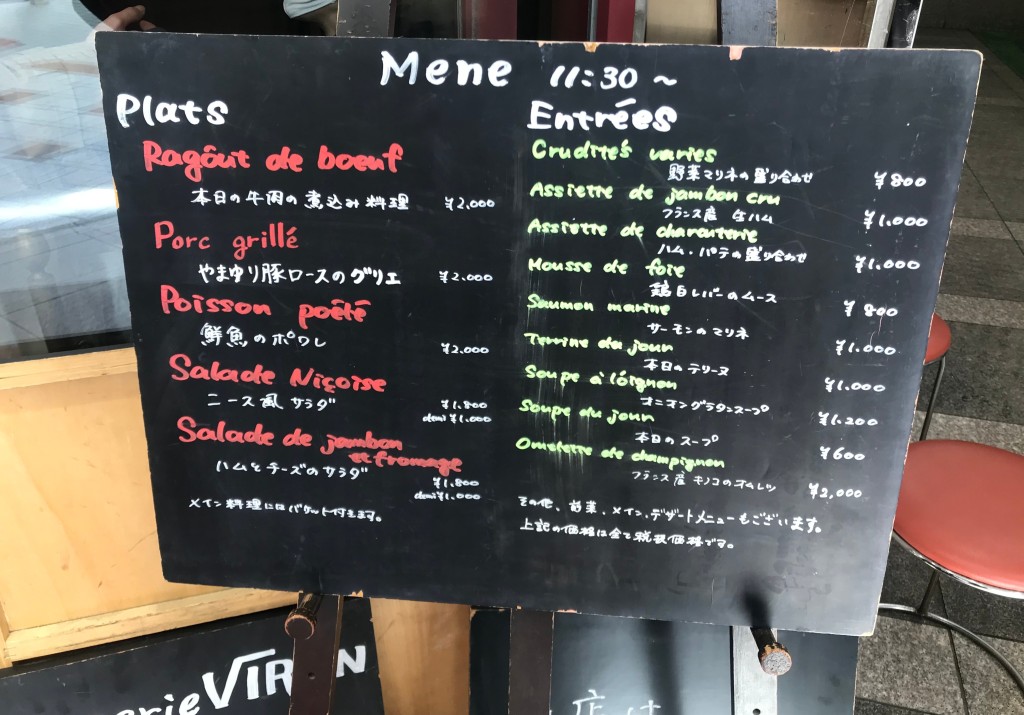 Mene 11:30～
Plats
Ragôut de boeuf
本日の牛肉の煮込み料理 ¥2,000
Porc grillé
やまゆり豚ロースのグリエ ¥2,000
Poisson poêlé
鮮魚のポワレ
¥2,000
Salade Niçoise
ニース風サラダ ¥1,800
demi ¥1,000
Salade de jambon
et fromage
ハムとチーズのサラダ ¥1,800
demi ¥1,000
メイン料理にはバゲット付きます。
Entrées
Crudités varies
野菜マリネの盛り合わせ ¥800
Assiette de jambon cru
フランス産 生ハム ¥1,000
Assiette de charcuterie
ハム・パテの盛り合わせ ¥1,000
Mousse de foie
鶏白レバーのムース ¥800
Saumon marine
サーモンのマリネ ¥1,000
Terrine du jour
本日のテリーヌ ¥1,000
Soupe à lóignon
オニオングラタンスープ ¥1,200
Soupe du jour
本日のスープ ¥600
Omelette de champignon
フランス産 キノコのオムレツ ¥2,000
その他、前菜、メイン、デザートメニューもございます。
上記の価格は全て税抜価格です。
erie VIRON